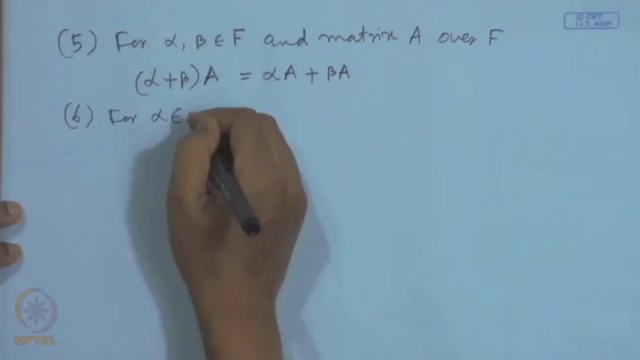 © CET
I.I.T. KGP
(5) For α, β ∈ F and matrix A over F
(α+β)A = αA + βA
(6) For α ∈
NPTEL